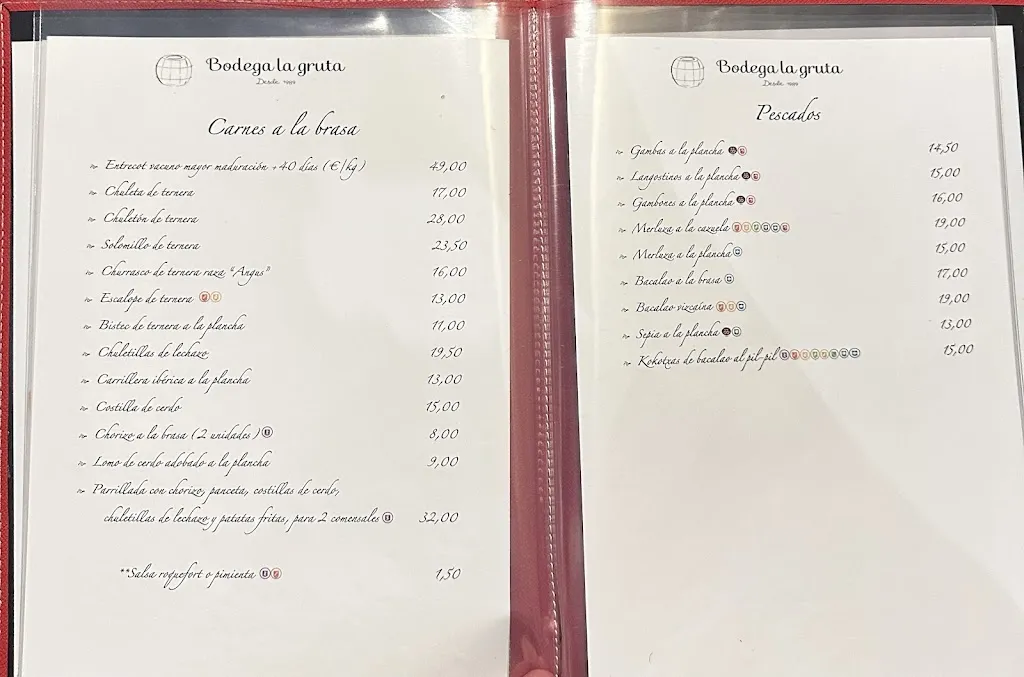 Bodega la gruta
Desde
Carnes a la brasa
Entrecot vacuno mayor maduración +40 días (€/kg) 49,00
Chuleta de ternera 17,00
Chuletón de ternera 28,00
Solomillo de ternera 23,50
Churrasco de ternera raza "Angus" 16,00
Escalope de ternera 13,00
Bistec de ternera a la plancha 11,00
Chuletillas de lechazo 19,50
Carrillera ibérica a la plancha 13,00
Costilla de cerdo 15,00
Chorizo a la brasa (2 unidades) 8,00
Lomo de cerdo adobado a la plancha 9,00
Parrillada con chorizo, panceta, costillas de cerdo,
chuletillas de lechazo y patatas fritas, para 2 comensales 32,00
**Salsa roquefort o pimienta 1,50
Bodega la gruta
Desde
Pescados
Gambas a la plancha 14,50
Langostinos a la plancha 15,00
Gambones a la plancha 16,00
Merluza a la cazuela 19,00
Merluza a la plancha 15,00
Bacalao a la brasa 17,00
Bacalao vizcaína 19,00
Sepia a la plancha 13,00
Kokotxas de bacalao al pil-pil 15,00